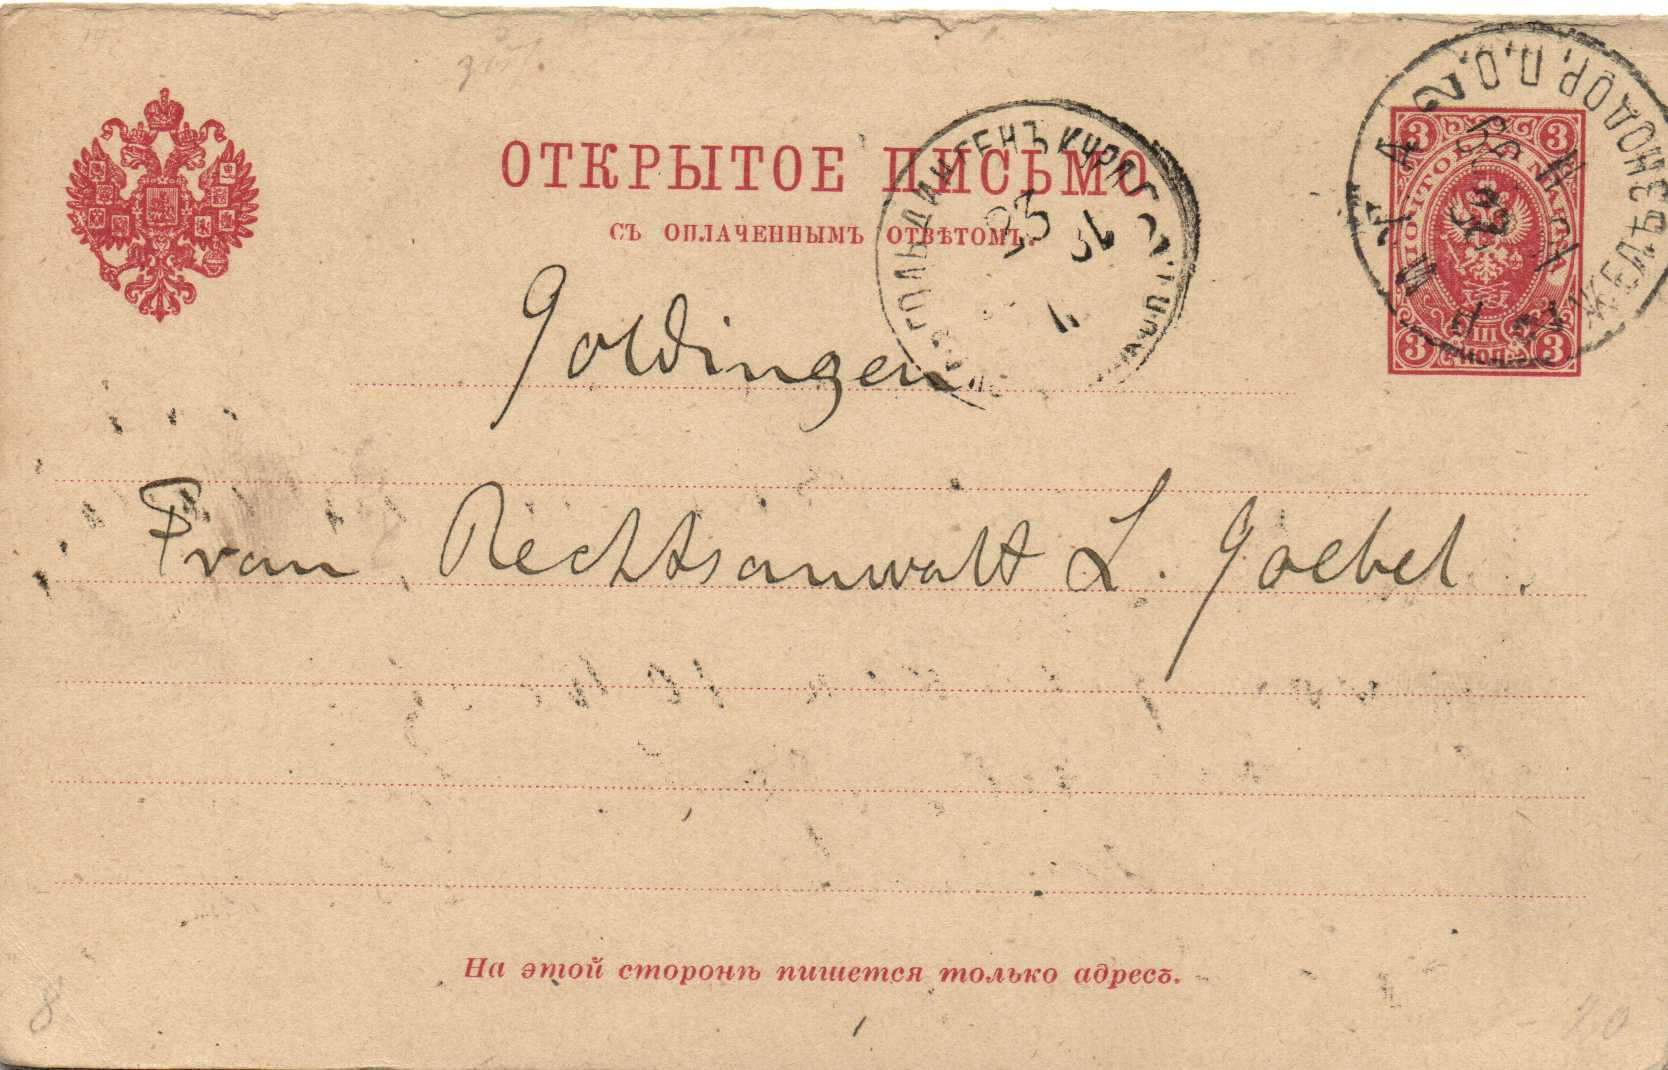 ОТКРЫТОЕ ПИСЬМО
СЪ ОПЛАЧЕННЫМЪ ОТВѢТОМЪ.
ГОЛЬДИНГЕНЪ КУРЛ. Г.
3 3
ПОЧТОВАЯ МАРКА
3 КОП. 3
ЖЕЛѢЗНОДОР. П. О.
Goldingen
Frau Rechtsanwalt L. Goebel.
На этой сторонѣ пишется только адресъ.
8